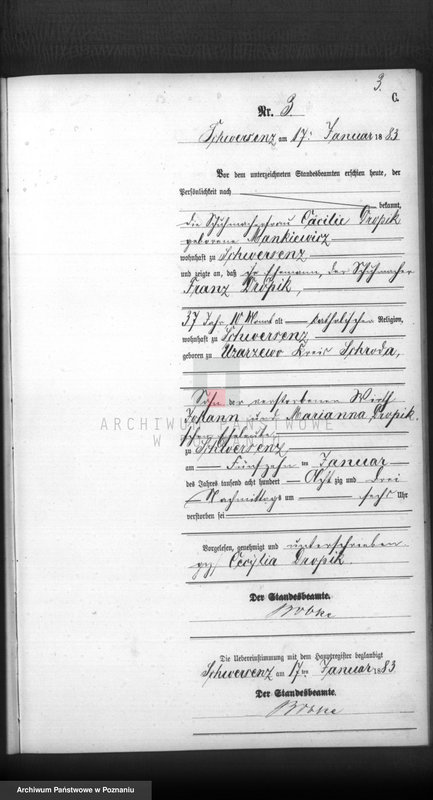 3.
C.
Nr. 3.
Schwersenz am 17. Januar 1883
Vor dem unterzeichneten Standesbeamten erschien heute, der
Persönlichkeit nach
bekannt,
die Schuhmacherfrau Cäcilie Dropik
geborene Mankiewicz
wohnhaft zu Schwersenz
und zeigte an, daß ihr Ehemann, der Schuhmacher
Franz Dropik,
37 Jahr 10 Monat alt katholischer Religion,
wohnhaft zu Schwersenz
geboren zu Uzarzewo Kreis Schroda,
Sohn der verstorbenen Wirth
Johann und Marianna Dropik
schen Eheleute
zu Schwersenz
am Fünfzehn ten Januar
des Jahres tausend acht hundert Acht zig und drei
Nachmittags um sechs Uhr
verstorben sei
Vorgelesen, genehmigt und unterschrieben
gez Cecylia Dropik.
Der Standesbeamte.
Die Uebereinstimmung mit dem Hauptregister beglaubigt
Schwersenz am 17ten Januar 1883
Der Standesbeamte.
ARCHIWUM PAŃSTWOWE
W POZNANIU
Archiwum Państwowe w Poznaniu